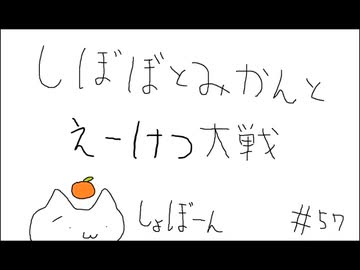 しぼぼとみかんと
えーけつ大戦
しょぼーん
#57